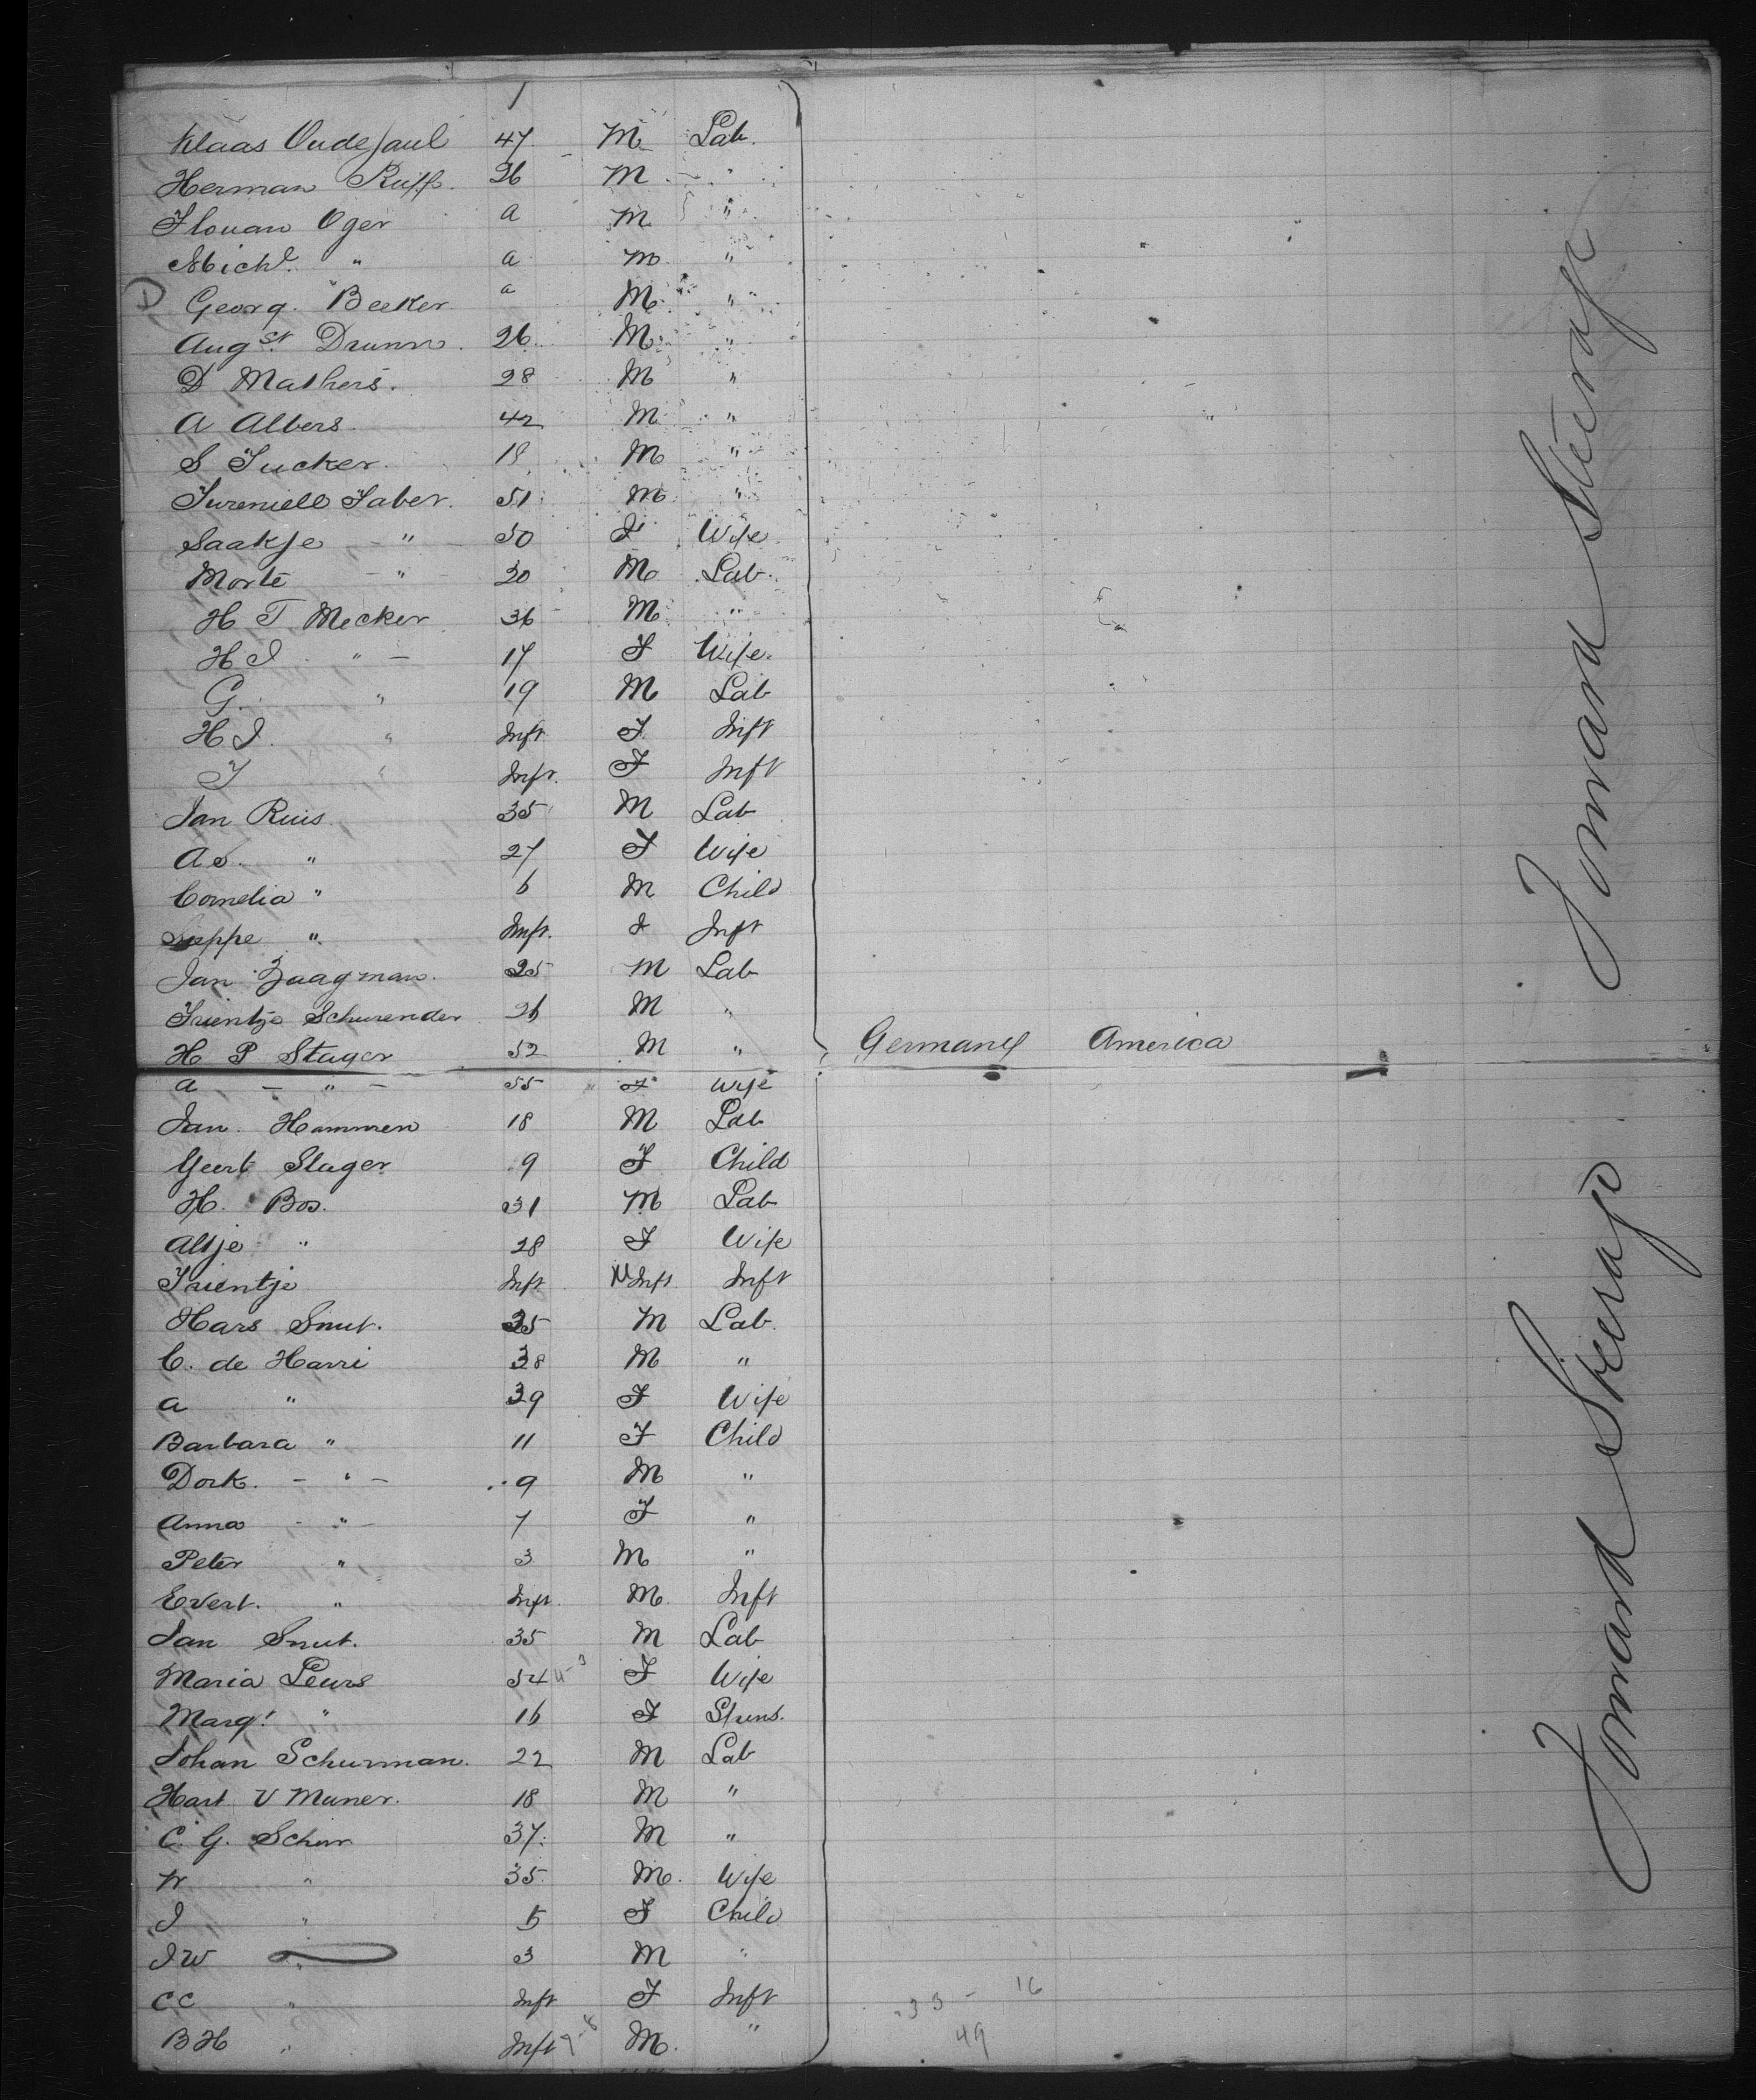 Klaas Oudejaul 47 M Lab.
Herman Ruff. 26 M "
Flouan Oger a M "
Michl. " a M "
Georg. Becker a M "
Augst. Drumm. 26 M "
D Mathers. 28 M "
A Albers 42 M "
S Tucker 18 M "
Faber. 51 M "
Saakje " 50 F Wife
Morte " 20 M Lab.
H T Mecker 36 M "
H I " 17 F Wife.
G. " 19 M Lab
H I. " Inft F. Inft
T " Inft. F Inft
Jan Ruis 35 M Lab
As. " 27 F Wife
Cornelia " 6 M Child
Seppe " Inft. F Inft
Jan Zaagman. 25 M Lab
Trientje Schurender 26 M "
H P Stager 52 M " Germany America
a " 55 F Wife
Jan. Hammen 18 M Lab
Geert Slager 9 F Child
H. Bos. 31 M Lab
Altje " 28 F Wife
Trientje Inft M Inft Inft
Hars Smit. 35 M Lab.
C. de Harri 38 M "
a " 39 F Wife
Barbara " 11 F Child
Dork. " 9 M "
Anna " 7 F "
Peter " 3 M "
Evert. " Inft. M. Inft
Jan Smit. 35 M Lab
Maria Leurs 54 F Wife
Marg! " 16 F Spins.
Johan Schurman. 22 M Lab
Hart V Muner. 18 M "
C. G. Schur 37. M "
W " 35. M. Wife
I " 5 F Child
I W " 3 M "
CC " Inft F Inft
BH " Inft M. "
33 - 16
49
Forward Steerage
Forward Steerage